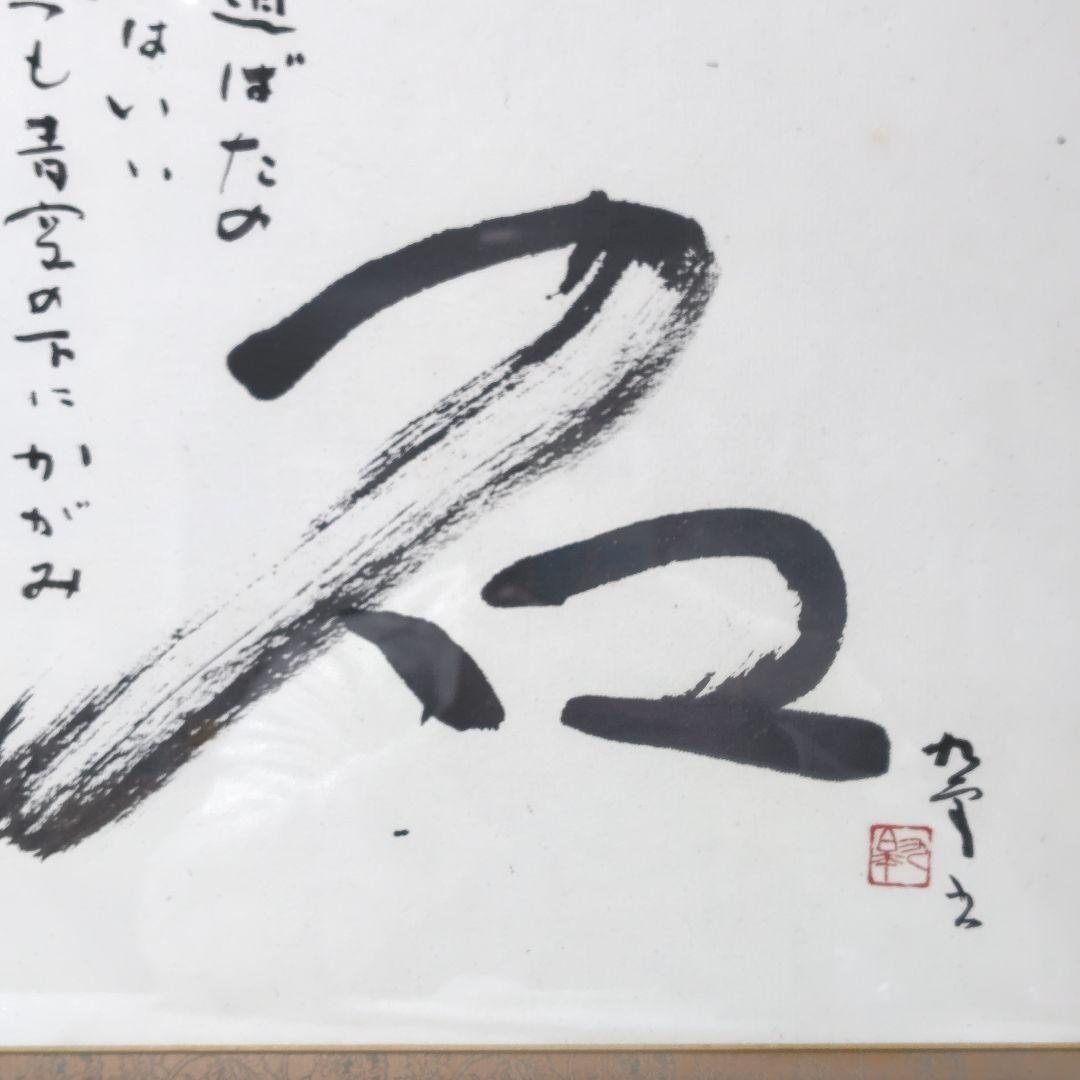 石
道ばたの
はいい
つも青空の下に
かがみ